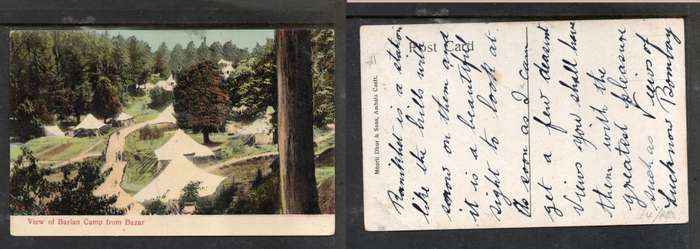 View of Barian Camp from Bazar
Post Card
Moorli Dhur & Sons, Ambala Cantt.
Ranikhet is a station
like the hills with
snow on them and
it is a beautiful
sight to look at
As soon as I can
get a few decent
views you shall have
them with the
greatest pleasure
such as Views of
Lucknow Bombay